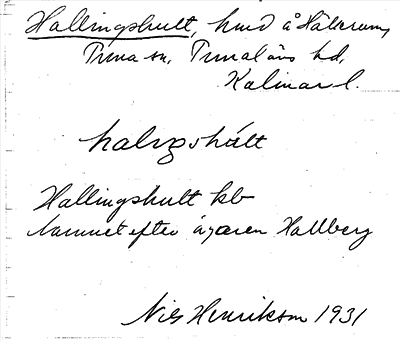 Hallingshult, hmd å Hälleruм,
Tuna sn, Tunaläns hd,
Kalmar l.
halıŋshúlt
Hallingshult kb
Namnet efter ägaren Hallberg
Nils Henrikson 1931